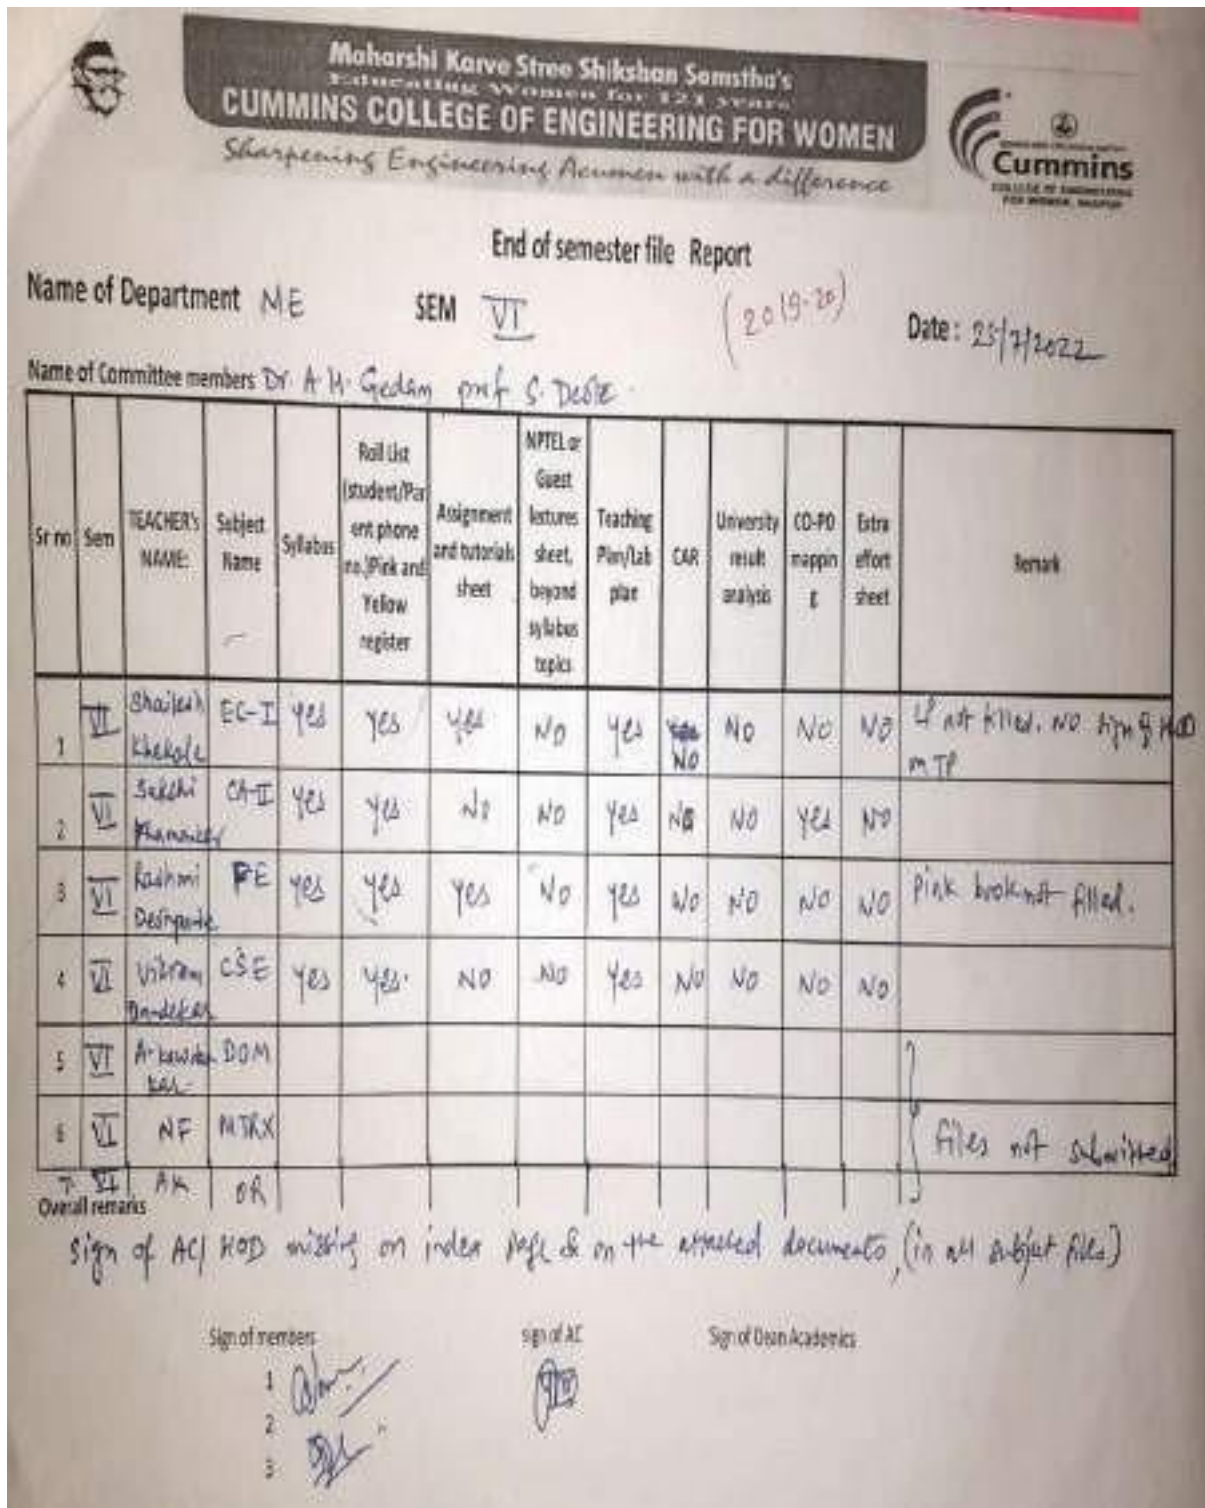 Maharshi Karve Stree Shikshan Samstha's
Educating Women for 121 years
CUMMINS COLLEGE OF ENGINEERING FOR WOMEN
Sharpening Engineering Acumen with a difference
Cummins
COLLEGE OF ENGINEERING
FOR WOMEN, NAGPUR
End of semester file Report
Name of Department ME SEM VI (2019-20) Date: 25/7/2022
Name of Committee members Dr. A. M. Gedam prof S.
Sr no Sem TEACHER's NAME: Subject Name Syllabus Roll List (student/Parent phone no.)Pink and Yellow register Assignment and tutorials sheet NPTEL or Guest lectures sheet, beyond syllabus topics Teaching Plan/Lab plan CAR University result analysis CO-PO mapping Extra effort sheet Remark
1 VI Shailesh Khekale EC-I Yes Yes Yes No Yes No No No No not filled. No sign of HOD
2 VI Sakshi CA-II Yes Yes No No Yes No No Yes No
3 VI Rashmi PE Yes Yes Yes No Yes No No No No Pink book not filled.
4 VI Vikram CSE Yes Yes. No No Yes No No No No
5 VI DOM
6 VI NF MTRX files not submitted
7 VI AK OR
Overall remarks
sign of AC/HOD missing on index page & on the attached documents, (in all subject files)
Sign of members sign of AC Sign of Dean Academics
1
2
3